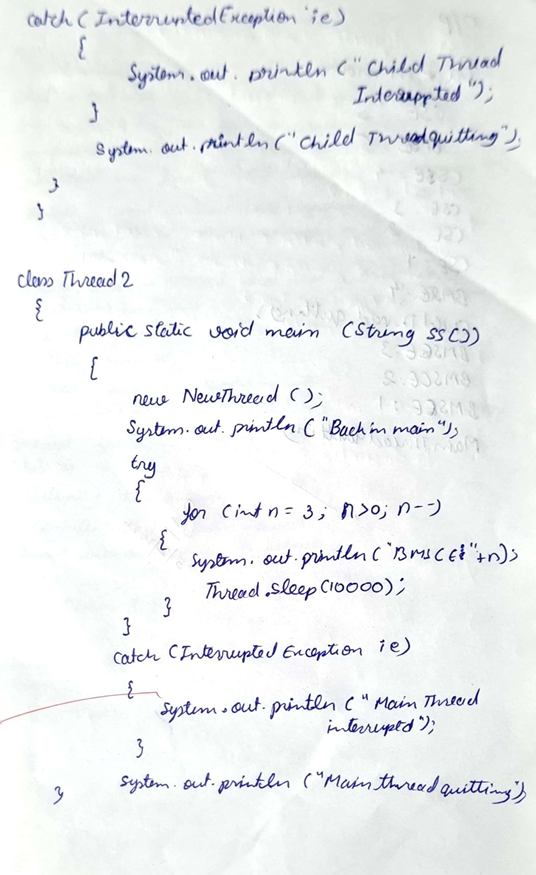 catch (InterruptedException ie)
{
System.out.println ("Child Thread
Interuppted");
}
System.out.println ("Child Thread quitting");
}
}
class Thread 2
{
public static void main (String ss[])
{
new NewThread ();
System.out.println ("Back in main");
try
{
for (int n = 3; n>0; n--)
{
System.out.println ("BMSCE:"+n);
Thread.sleep(10000);
}
}
catch (Interrupted Exception ie)
{
System.out.println ("Main Thread
interruptd");
}
System.out.println ("Main thread quitting");
}